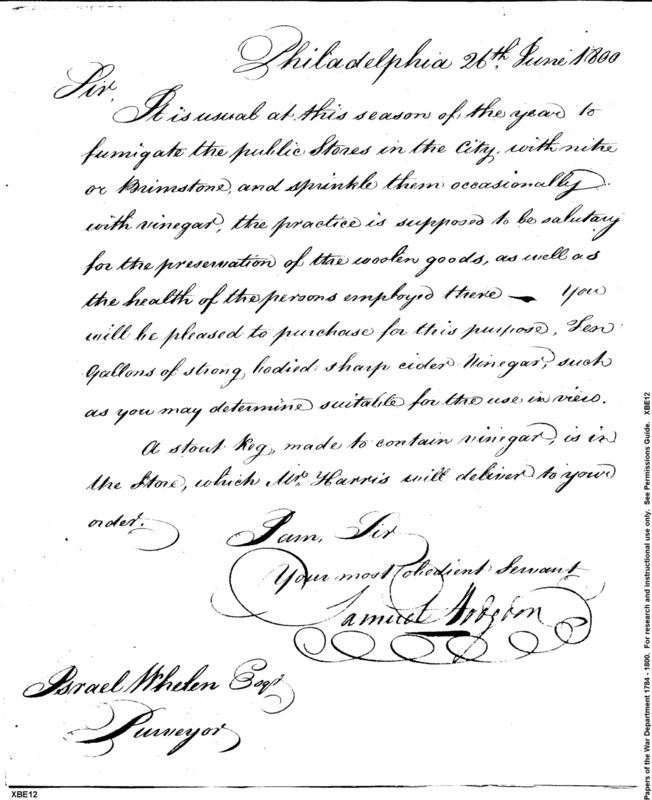 Philadelphia 26th. June 1800
Sir,
It is usual at this season of the year to
fumigate the public Stores in the City, with nitre
or Brimstone, and sprinkle them occasionally
with vinegar, the practice is supposed to be salutary
for the preservation of the woolen goods, as well as
the health of the persons employed there — You
will be pleased to purchase for this purpose, Ten
Gallons of strong, bodied sharp cider Vinegar, such
as you may determine suitable for the use in view.
A stout Keg, made to contain vinegar, is in
the Store, which Mr. Harris will deliver to your
order.
I am, Sir
Your most obedient Servant
Samuel Hodgdon
Israel Whelen Esqr
Purveyor
XBE12
Papers of the War Department 1784 - 1800. For research and instructional use only. See Permissions Guide. XBE12